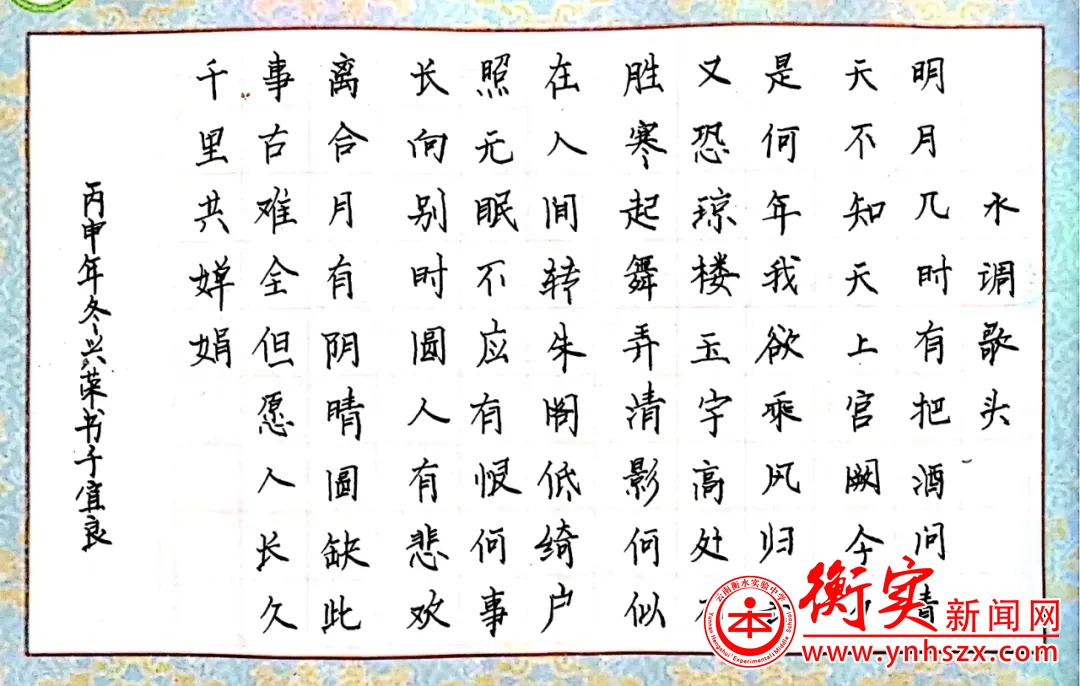 水调歌头
明月几时有把酒问
天不知天上宫阙今
是何年我欲乘风归
又恐琼楼玉宇高处不
胜寒起舞弄清影何似
在人间转朱阁低绮户
照无眠不应有恨何事
长向别时圆人有悲欢
离合月有阴晴圆缺此
事古难全但愿人长久
千里共婵娟
丙申年冬兴荣书于宜良
云南衡水实验中学
Yunnan Hengshui Experimental Middle School
衡实新闻网
www.ynhszx.com